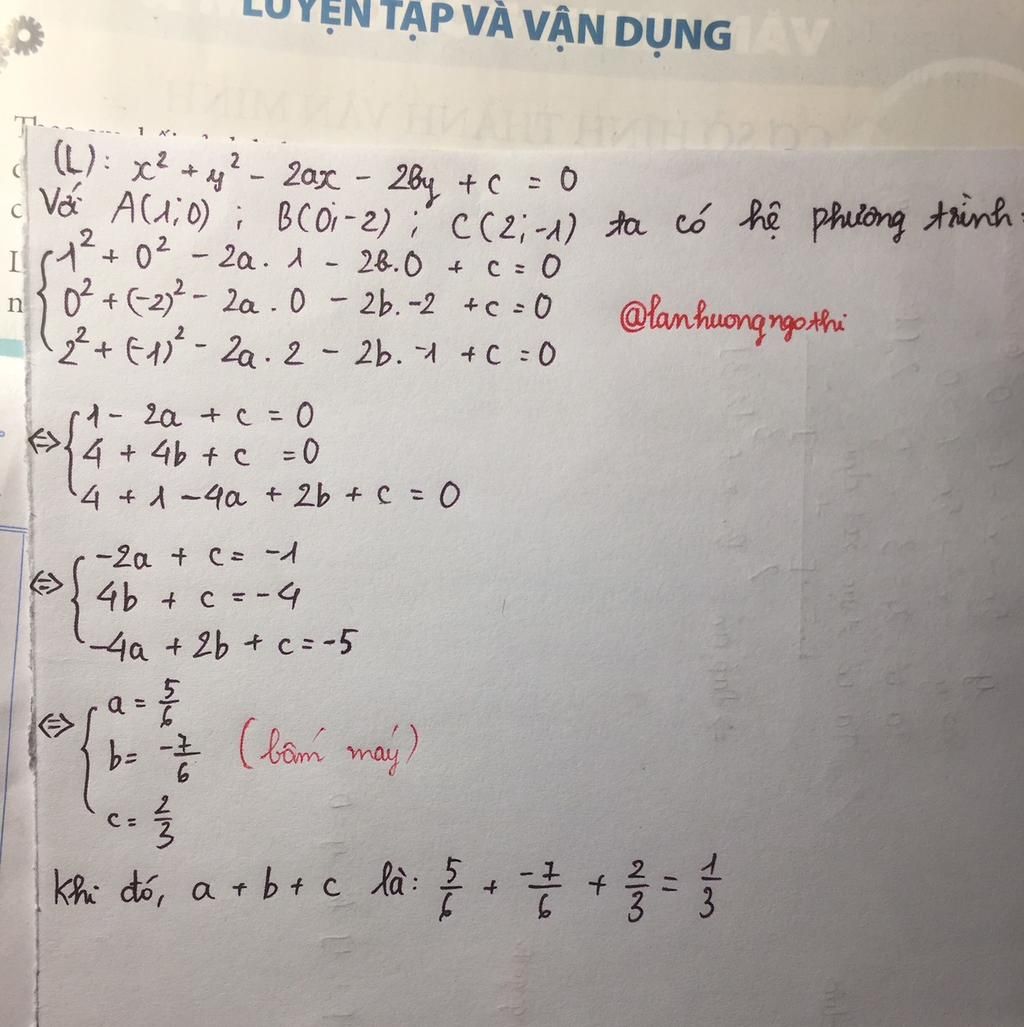 LUYỆN TẬP VÀ VẬN DỤNG
(L): x² + y² - 2ax - 2by + c = 0
Với A(1;0) ; B(0;-2) ; C(2;-1) ta có hệ phương trình:
1² + 0² - 2a.1 - 2b.0 + c = 0
0² + (-2)² - 2a.0 - 2b.-2 + c = 0
@lanhuongngothi
2² + (-1)² - 2a.2 - 2b.-1 + c = 0
⇔ { 1 - 2a + c = 0
4 + 4b + c = 0
4 + 1 - 4a + 2b + c = 0
⇔ { -2a + c = -1
4b + c = -4
-4a + 2b + c = -5
⇔ { a = 5/6
b = -7/6 (bấm máy)
c = 2/3
Khi đó, a + b + c là: 5/6 + -7/6 + 2/3 = 1/3